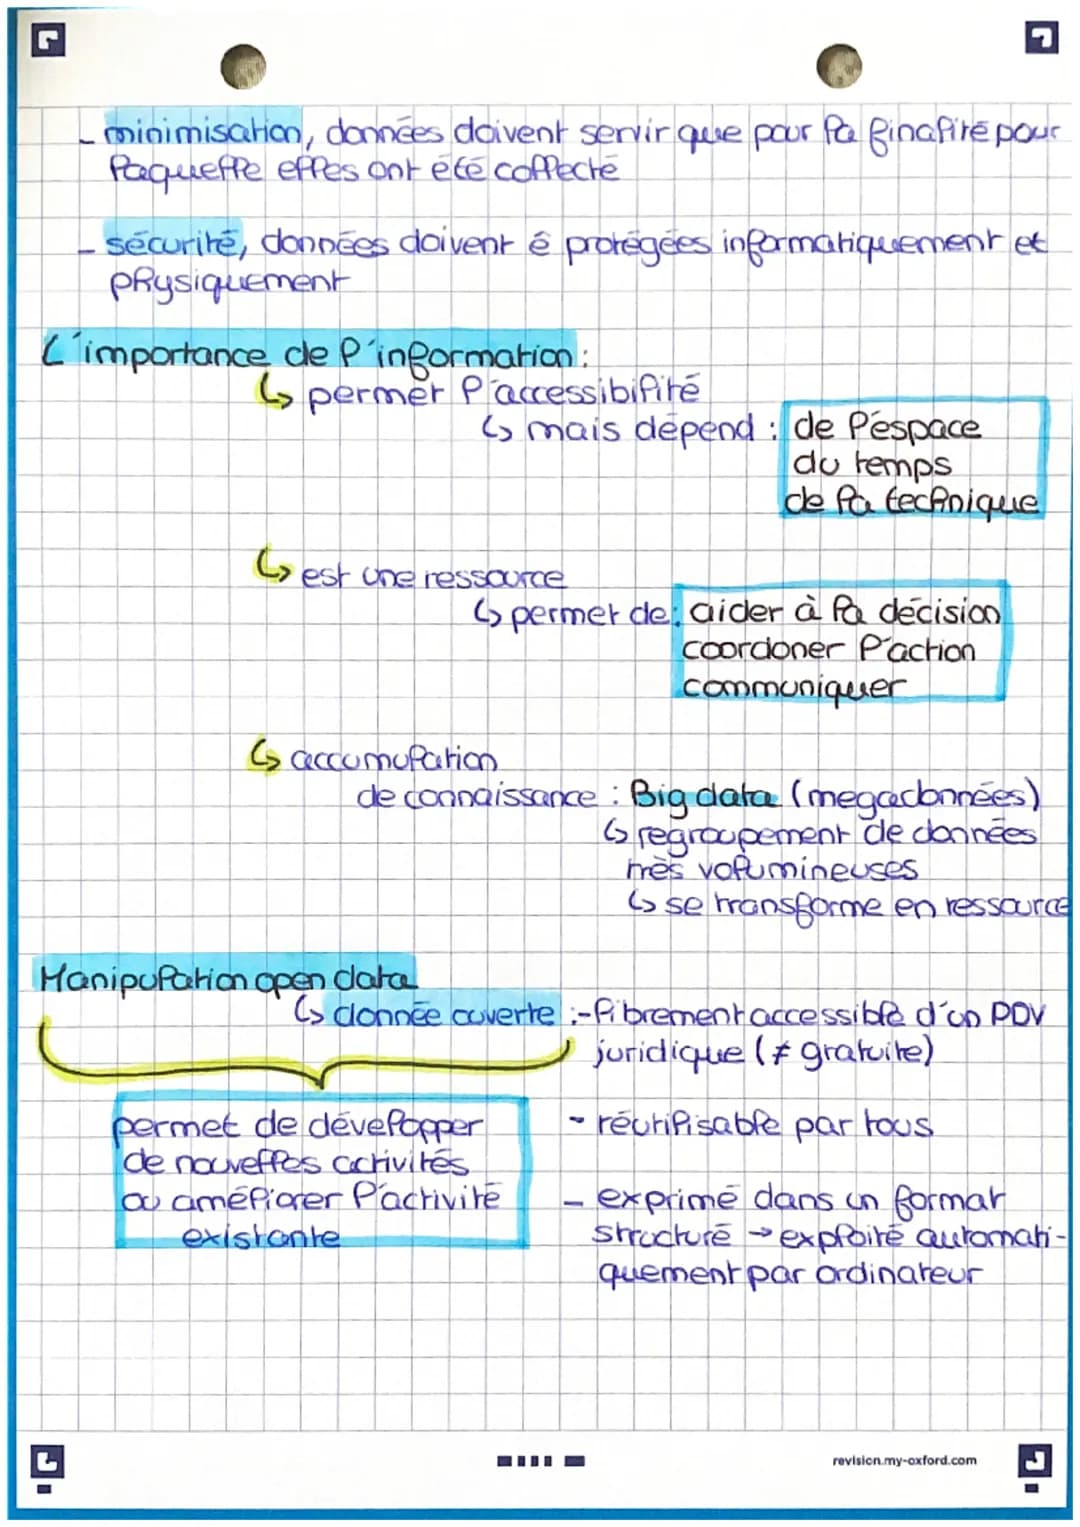 - minimisation, données doivent servir que pour la finalité pour
laquelle elles ont été collecté
- sécurité, données doivent ê protégées informatiquement et
physiquement
L'importance de l'information :
↳ permet l'accessibilité
↳ mais dépend : de l'espace
du temps
de la technique
↳ est une ressource
↳ permet de : aider à la décision
coordoner l'action
communiquer
↳ accumulation
de connaissance : Big data (megadonnées)
↳ regroupement de données
très volumineuses
↳ se transforme en ressource
Manipulation open data
↳ donnée ouverte : - librement accessible d'un PDV
juridique (≠ gratuite)
permet de développer
de nouvelles activités
ou améliorer l'activité
existante
- réutilisable par tous
- exprimé dans un format
structuré → exploité automati-
quement par ordinateur
revision.my-oxford.com